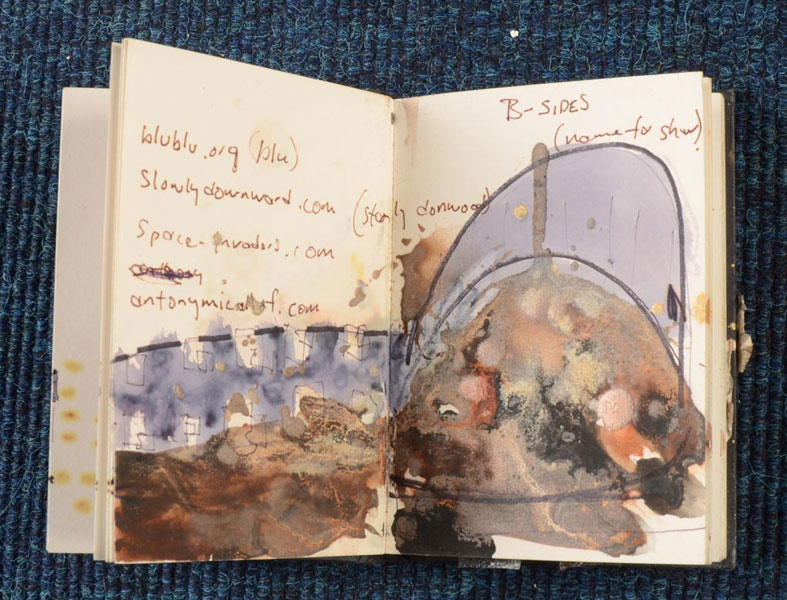 blublu.org (blu)
Slowlydownward.com (stanly donwood)
Space-invaders.com
antonymicalof.com
B-SIDES
(name for show)